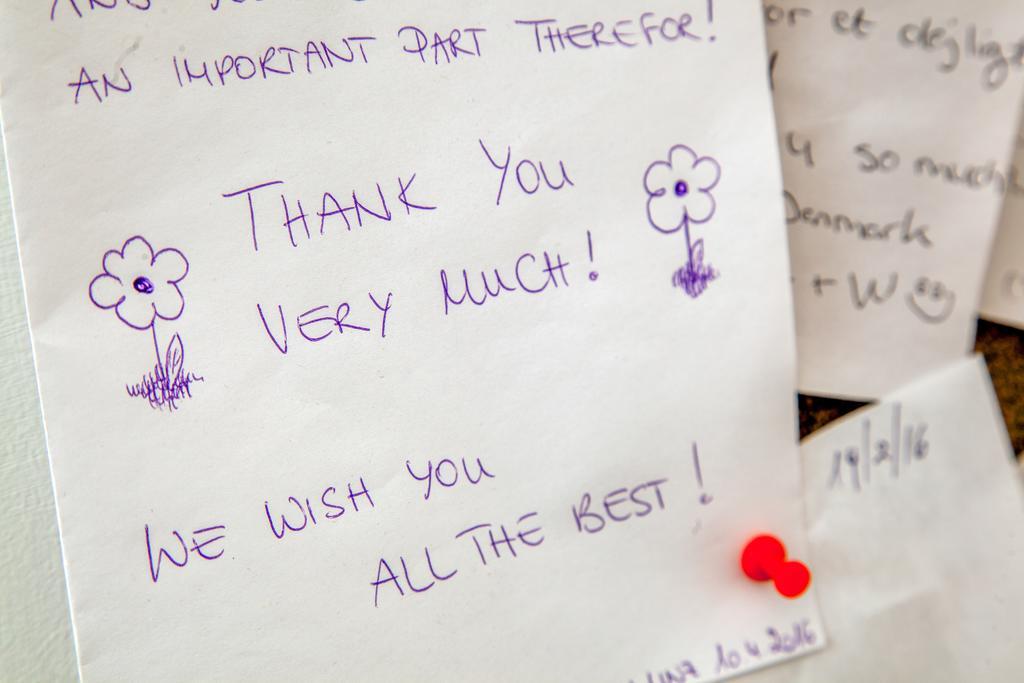 AN IMPORTANT PART THEREFOR!
THANK YOU
VERY MUCH!
WE WISH YOU
ALL THE BEST!
10.4.2016
or et dejlig
so much
Denmark
+ W
19/2/16